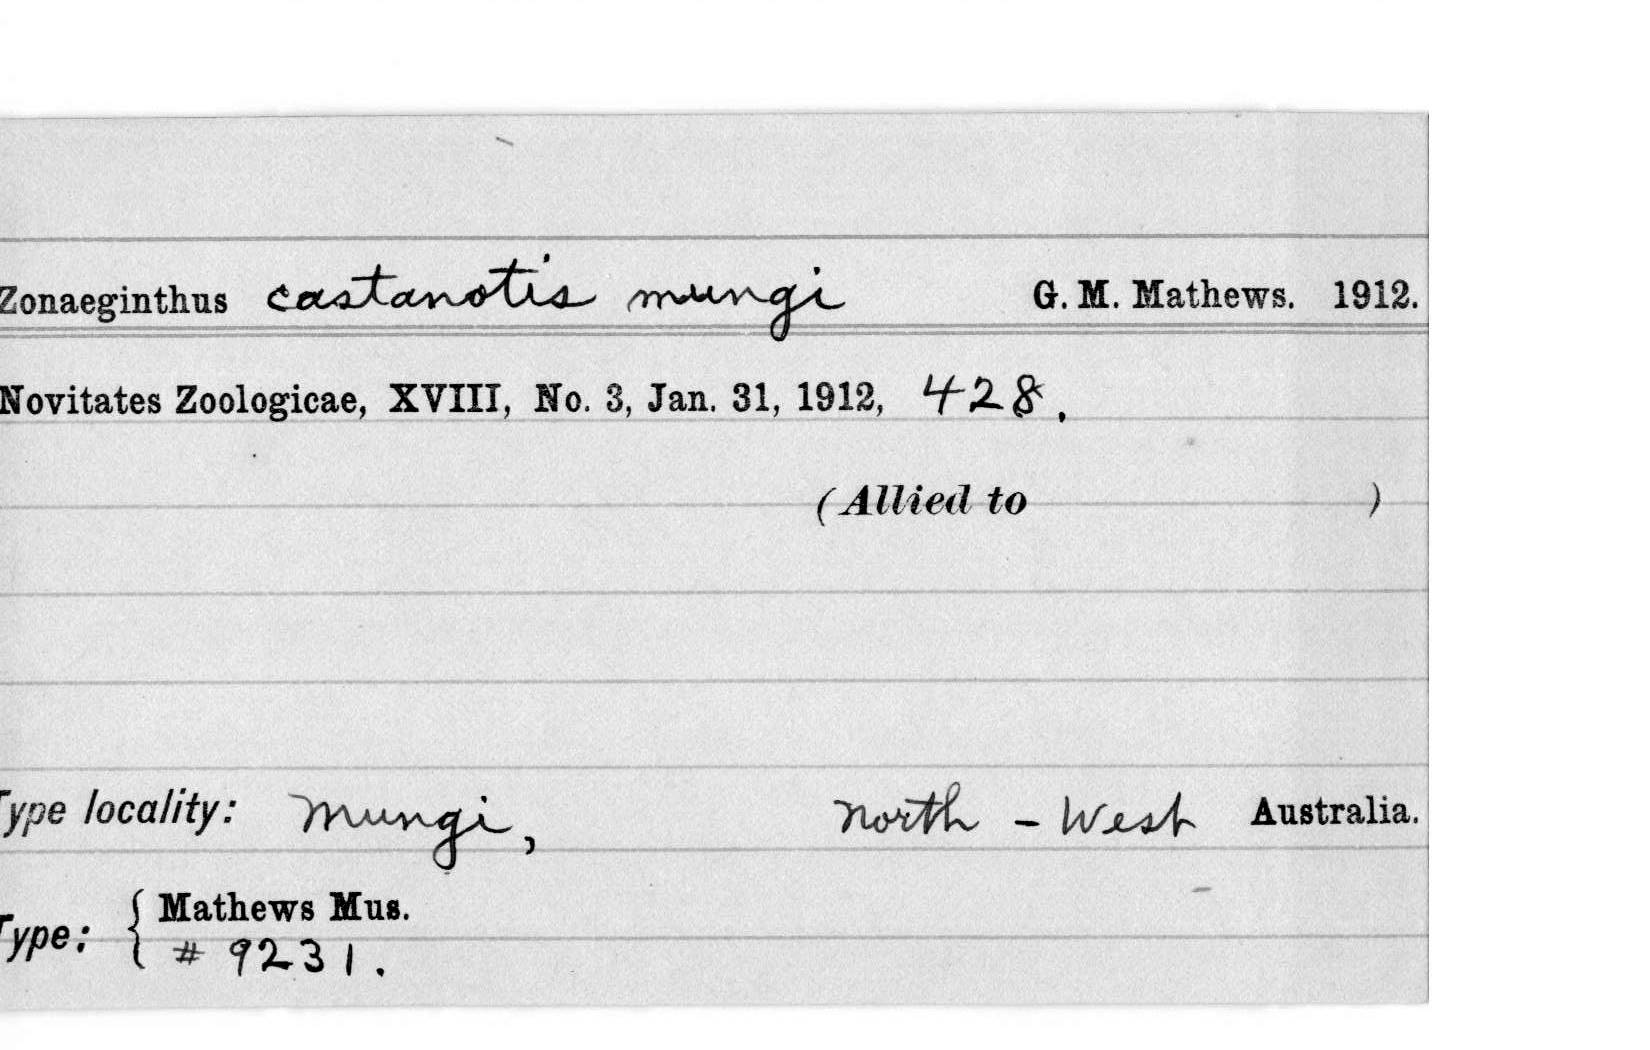 Zonaeginthus castanotis mungi G. M. Mathews. 1912.
Novitates Zoologicae, XVIII, No. 3, Jan. 31, 1912, 428.
(Allied to )
Type locality: Mungi, North - West Australia.
Type: { Mathews Mus.
# 9231.